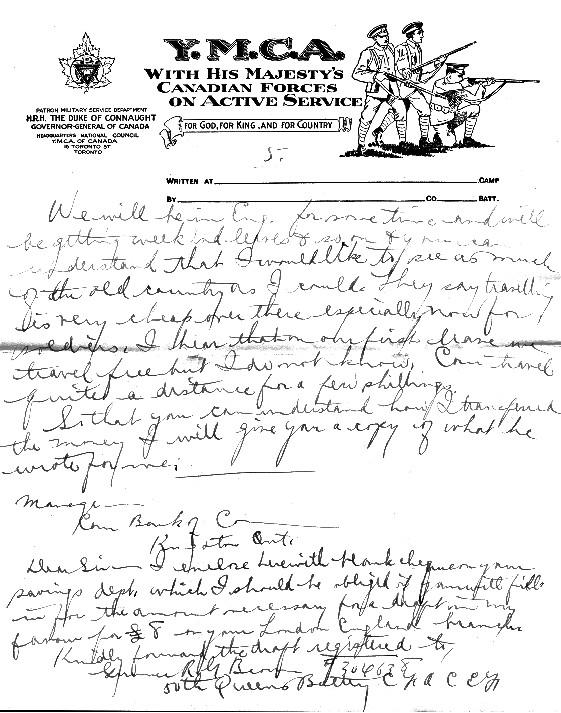 Y.M.C.A.
WITH HIS MAJESTY'S
CANADIAN FORCES
ON ACTIVE SERVICE
PATRON MILITARY SERVICE DEPARTMENT
H.R.H. THE DUKE OF CONNAUGHT
GOVERNOR-GENERAL OF CANADA
HEADQUARTERS NATIONAL COUNCIL
Y.M.C.A. OF CANADA
15 TORONTO ST
TORONTO
FOR GOD, FOR KING, AND FOR COUNTRY
5.
WRITTEN AT CAMP
BY CO. BATT.
We will be in Eng. for some time and will
be getting week end leaves & so on & you can
understand that I would like to see as much
of the old country as I could. They say travelling
is very cheap over there especially now for
soldiers. I hear that on our first leave we
travel free but I do not know. Can travel
quite a distance for a few shillings.
So that you can understand how I transferred
the money I will give you a copy of what he
wrote for me:
Manager
Can Bank of C
Kingston Ont.
Dear Sir I enclose herewith blank cheque on your
savings dept. which I should be obliged if you will fill
in for the amount necessary for a draft in my
favour for £8 on your London England branch.
Kindly forward the draft registered to,
Gunner R G Brown
50th Queens Battery C F A C E F